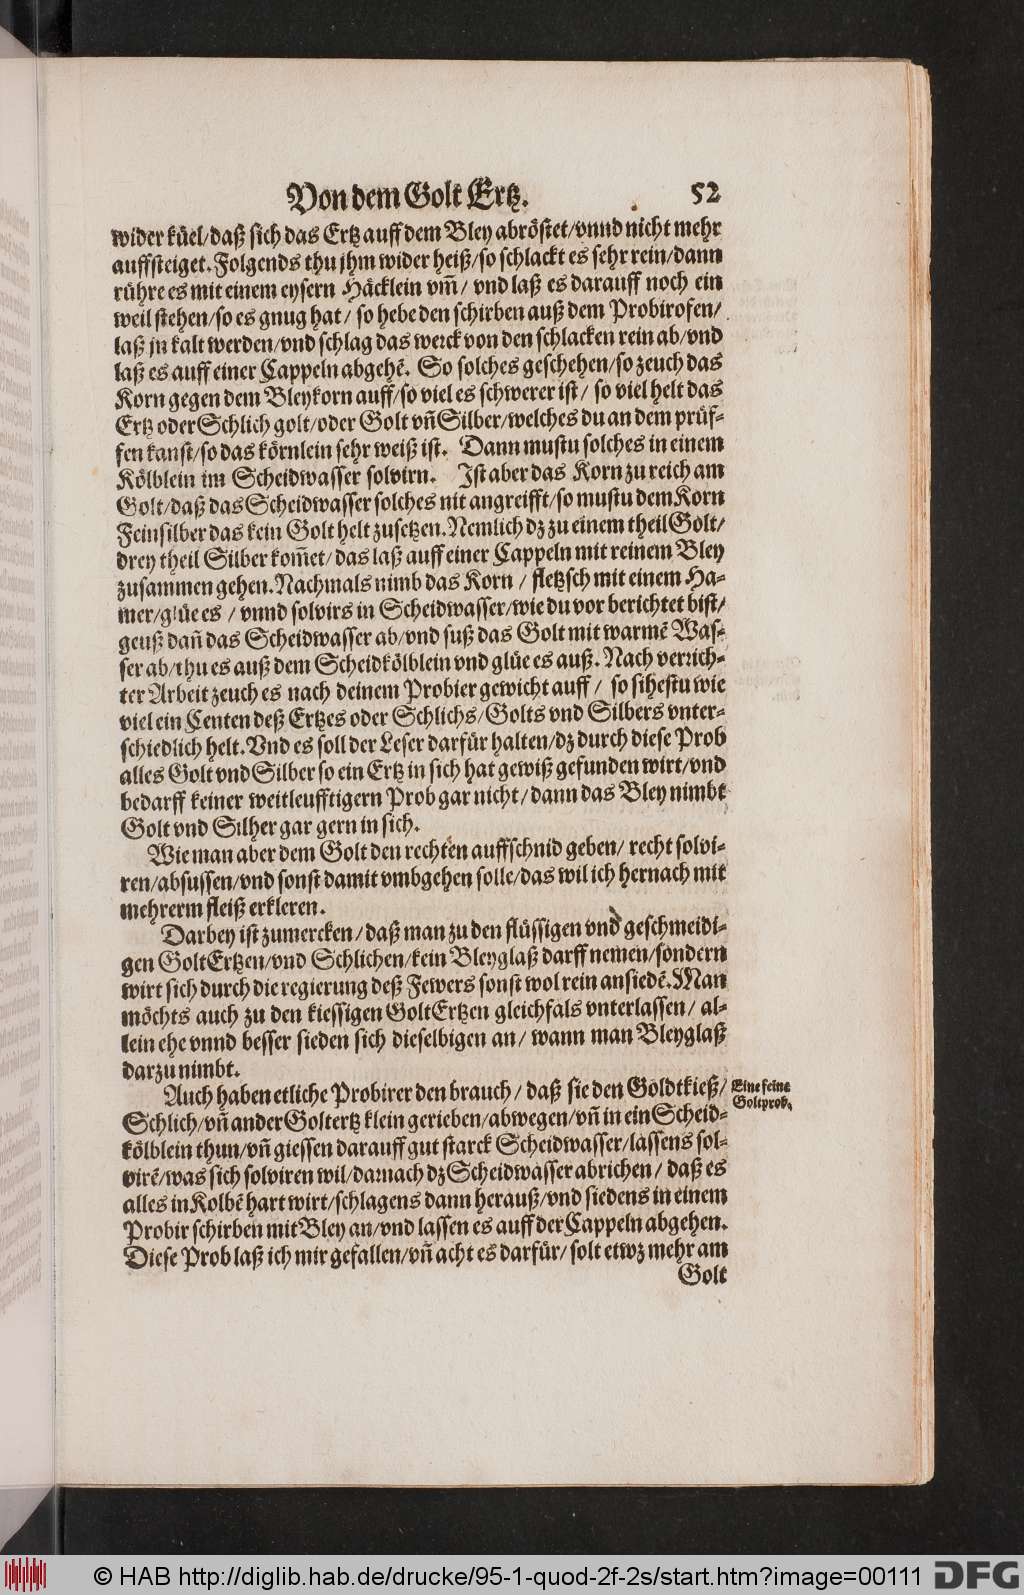 Von dem Golt Ertz. 52
wider küel/daß sich das Ertz auff dem Bley abröstet/vnnd nicht mehr
auffsteiget. Folgends thu jhm wider heiß/so schlackt es sehr rein/dann
rühre es mit einem eysern Häcklein vm̃/ vnd laß es darauff noch ein
weil stehen/so es gnug hat/ so hebe den schirben auß dem Probirofen/
laß jn kalt werden/vnd schlag das werck von den schlacken rein ab/vnd
laß es auff einer Cappeln abgehẽ. So solches geschehen/so zeuch das
Korn gegen dem Bleykorn auff/so viel es schwerer ist/ so viel helt das
Ertz oder Schlich golt/oder Golt vñ Silber/welches du an dem prüf-
fen kanst/so das körnlein sehr weiß ist. Dann mustu solches in einem
Kölblein im Scheidwasser solvirn. Ist aber das Korn zu reich am
Golt/daß das Scheidwasser solches nit angreifft/so mustu dem Korn
Feinsilber das kein Golt helt zusetzen. Nemlich dz zu einem theil Golt/
drey theil Silber kom̃et/das laß auff einer Cappeln mit reinem Bley
zusammen gehen. Nachmals nimb das Korn / fletzsch mit einem Ha-
mer/glüe es / vnnd solvirs in Scheidwasser/wie du vor berichtet bist/
geuß dañ das Scheidwasser ab/vnd suß das Golt mit warmẽ Was-
ser ab/thu es auß dem Scheidkölblein vnd glüe es auß. Nach verrich-
ter Arbeit zeuch es nach deinem Probier gewicht auff / so sihestu wie
viel ein Centen deß Ertzes oder Schlichs/Golts vnd Silbers vnter-
schiedlich helt. Vnd es soll der Leser darfür halten/dz durch diese Prob
alles Golt vnd Silber so ein Ertz in sich hat gewiß gefunden wirt/vnd
bedarff keiner weitleufftigern Prob gar nicht/dann das Bley nimbt
Golt vnd Silher gar gern in sich.
Wie man aber dem Golt den rechten auffschnid geben/ recht solvi-
ren/absussen/vnd sonst damit vmbgehen solle/das wil ich hernach mit
mehrerm fleiß erkleren.
Darbey ist zumercken/daß man zu den flüssigen vnd geschmeidi-
gen GoltErtzen/vnd Schlichen/kein Bleyglaß darff nemen/sondern
wirt sich durch die regierung deß Fewers sonst wol rein ansiedẽ. Man
möchts auch zu den kiessigen GoltErtzen gleichfals vnterlassen/ al-
lein ehe vnnd besser sieden sich dieselbigen an/ wann man Bleyglaß
darzu nimbt.
Auch haben etliche Probirer den brauch/ daß sie den Goldtkieß/
Eine feine
Goltprob.
Schlich/vñ ander Goltertz klein gerieben/abwegen/vñ in ein Scheid-
kölblein thun/vñ giessen darauff gut starck Scheidwasser/lassens sol-
virẽ/was sich solviren wil/darnach dz Scheidwasser abrichen/ daß es
alles in Kolbẽ hart wirt/schlagens dann herauß/vnd siedens in einem
Probirschirben mit Bley an/vnd lassen es auff der Cappeln abgehen.
Diese Prob laß ich mir gefallen/vñ acht es darfür/ solt etwz mehr am
Golt
© HAB http://diglib.hab.de/drucke/95-1-quod-2f-2s/start.htm?image=00111
DFG